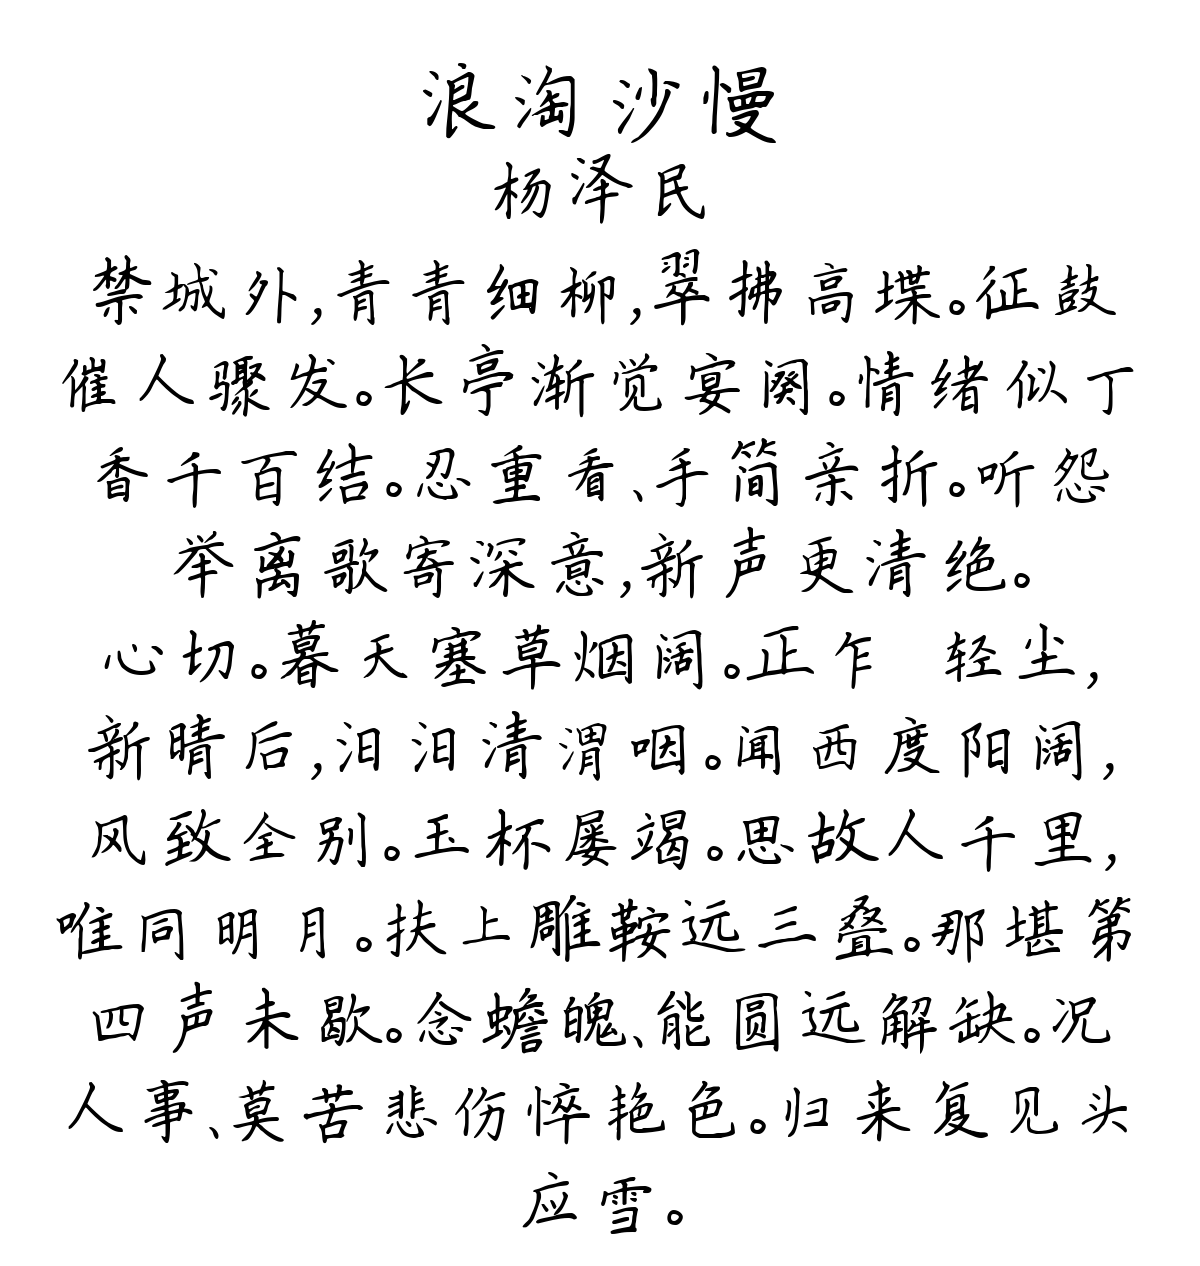 浪淘沙慢
杨泽民
禁城外,青青细柳,翠拂高堞。征鼓
催人骤发。长亭渐觉宴阕。情绪似丁
香千百结。忍重看、手简亲折。听怨
举离歌寄深意,新声更清绝。
心切。暮天塞草烟阔。正乍 轻尘,
新晴后,汨汨清渭咽。闻西度阳阔,
风致全别。玉杯屡竭。思故人千里,
唯同明月。扶上雕鞍远三叠。那堪第
四声未歇。念蟾魄、能圆远解缺。况
人事、莫苦悲伤悴艳色。归来复见头
应雪。